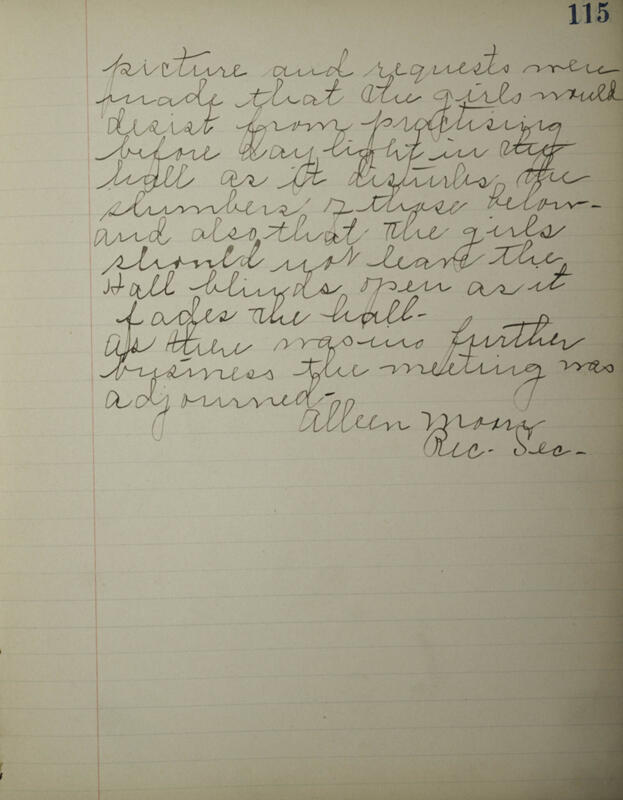 115
picture and requests were
made that the girls would
desist from practising
before daylight in the
hall as it disturbs the
slumbers of those below-
and also that the girls
should not leave the
Hall blinds open as it
fades the hall-
As there was no further
business the meeting was
adjourned-
Alleen Moon
Rec- Sec-